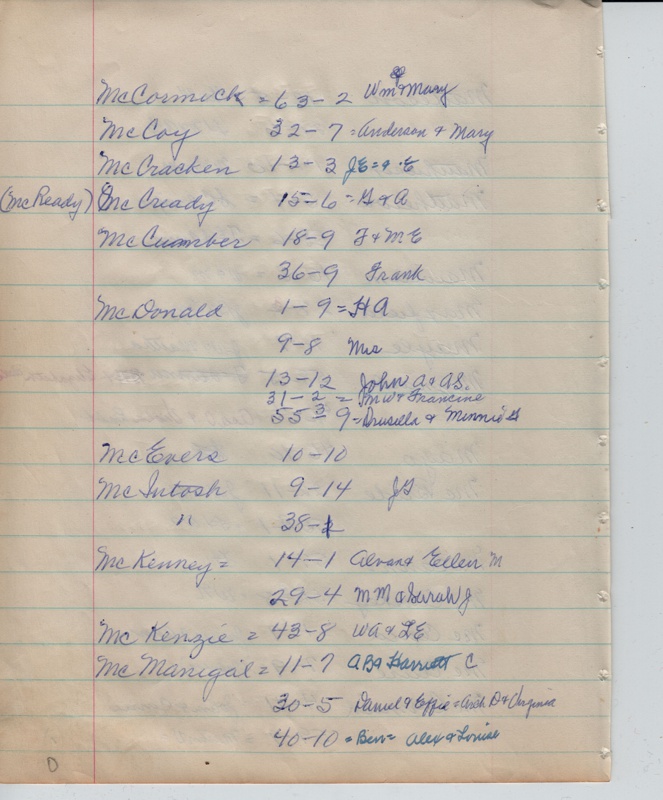 McCormick = 63-2 Wm & Mary
McCoy 32-7 = Anderson & Mary
McCracken 13-3 JE = & E
(McReady) McCready 15-6 = G & A
McCumber 18-9 F & M E
36-9 Frank
McDonald 1-9 = HA
9-8 Mrs
13-12 John A & AS.
31-2 = & Francine
55 9 = Drusella & Minnie
McEvers 10-10
McIntosh 9-14 JG
" 38-
McKenney = 14-1 Alvan & Ellen M
29-4 MM & Sarah J
McKenzie = 43-8 WA & LE
McManigal = 11-7 AB & Harriett C
30-5 Daniel & Effie = Arch D & Virginia
40-10 = Ben = Alex & Louise
D